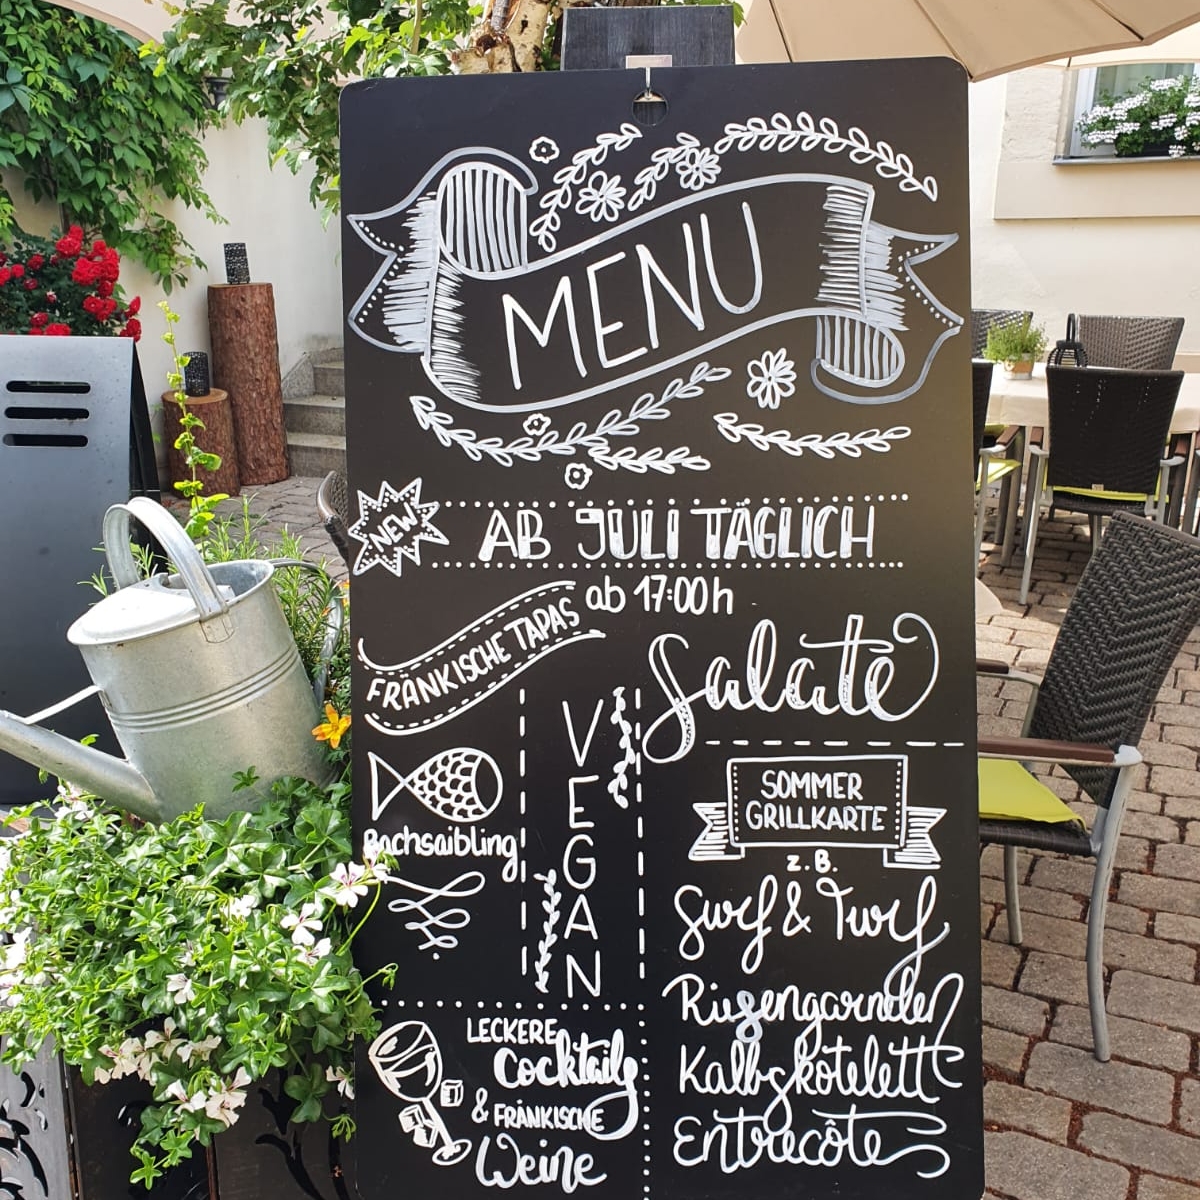 MENU
NEW
AB JULI TÄGLICH
ab 17:00h
FRÄNKISCHE TAPAS
Bachsaibling
VEGAN
LECKERE
Cocktails
& FRÄNKISCHE
Weine
Salate
SOMMER
GRILLKARTE
z.B.
Surf & Turf
Riesengarnelen
Kalbskotelett
Entrecôte